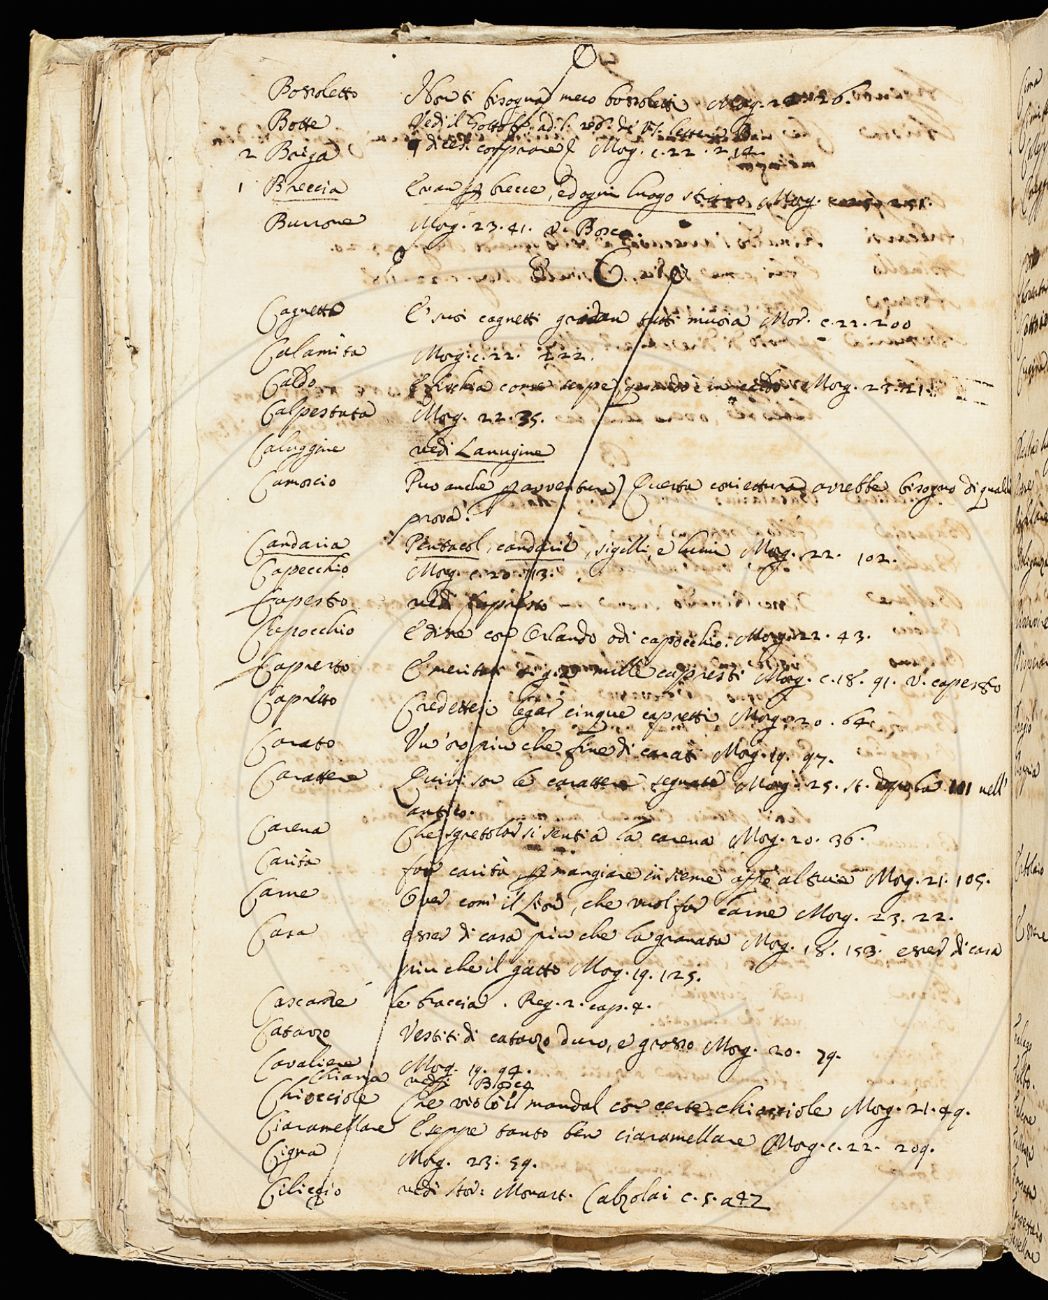 Bossoletto Non ti bisogna meco bossoletti Morg. 26.
Botte Vedi il
2 Briga Morg. c. 22. 214
1 Breccia E van p brecce, ed ogni luogo strano, Morg.
Burrone Morg. 23. 41. v. Bosco.
C
Cagnetto E suoi cagnetti gridan tutti musia Mor. c. 22. 200
Calamita Morg. c. 22. 222.
Caldo E fischia come serpe quando è in caldo Morg. 23.
Calpestata Morg. 22. 35.
Caluggine vedi Lanugine
Camoscio Può anche p avventura) Questa coniettura avrebbe bisogno di qualche
prova.
Candaria Pentacol, candarie, sigilli, e lumi Morg. 22. 102.
Capecchio Morg. c. 20. 113.
Capesto vedi Capresto
Capocchio E disse con Orlando odi capocchio. Morg. 22. 43.
Capresto E meritar mille capresti Morg. c. 18. 91. v. capesto
Capretto Credetter legar cinque capretti Morg. 20. 64
Carato Un' oro piu che fine di carati Morg. 19. 97.
Carattere Quivi son le carattere segnate Morg. 25. st. dopo la 101 nell'
antico.
Carena Che sgretolar si sentia la carena Morg. 20. 36.
Carità far carità, p mangiare insieme Morg. 21. 105.
Carne Over com' il Lion, che vuol far carne Morg. 23. 22.
Casa esser di casa piu che la granata Morg. 18. 153. esser di casa
piu che il gatto Morg. 19. 125.
Cascare le braccia. Reg. 2. cap. 4.
Catarzo Vestiti di catarzo duro, e grosso Morg. 20. 79.
Cavaliere Morg. 19. 94.
Chiana vedi Bosco
Chiocciole Che violò il mandal con certe chiocciole Morg. 21. 49.
Ciaramellare E seppe tanto ben ciaramellare Morg. c. 22. 209.
Cigna Morg. 23. 59.
Ciliegio vedi stor: Morart. Calzolai c. 5. a 42